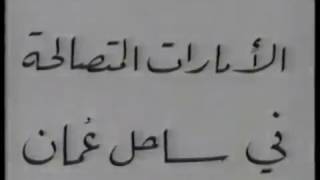 الأمارات المتصالحة
في ساحل عُمان